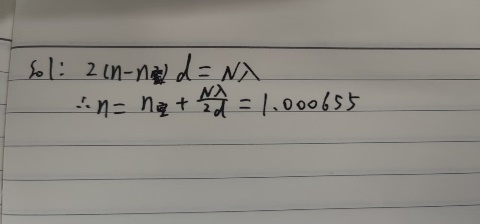 Sol: 2(n-n空)d=Nλ
∴n=n空+Nλ/2d=1.000655